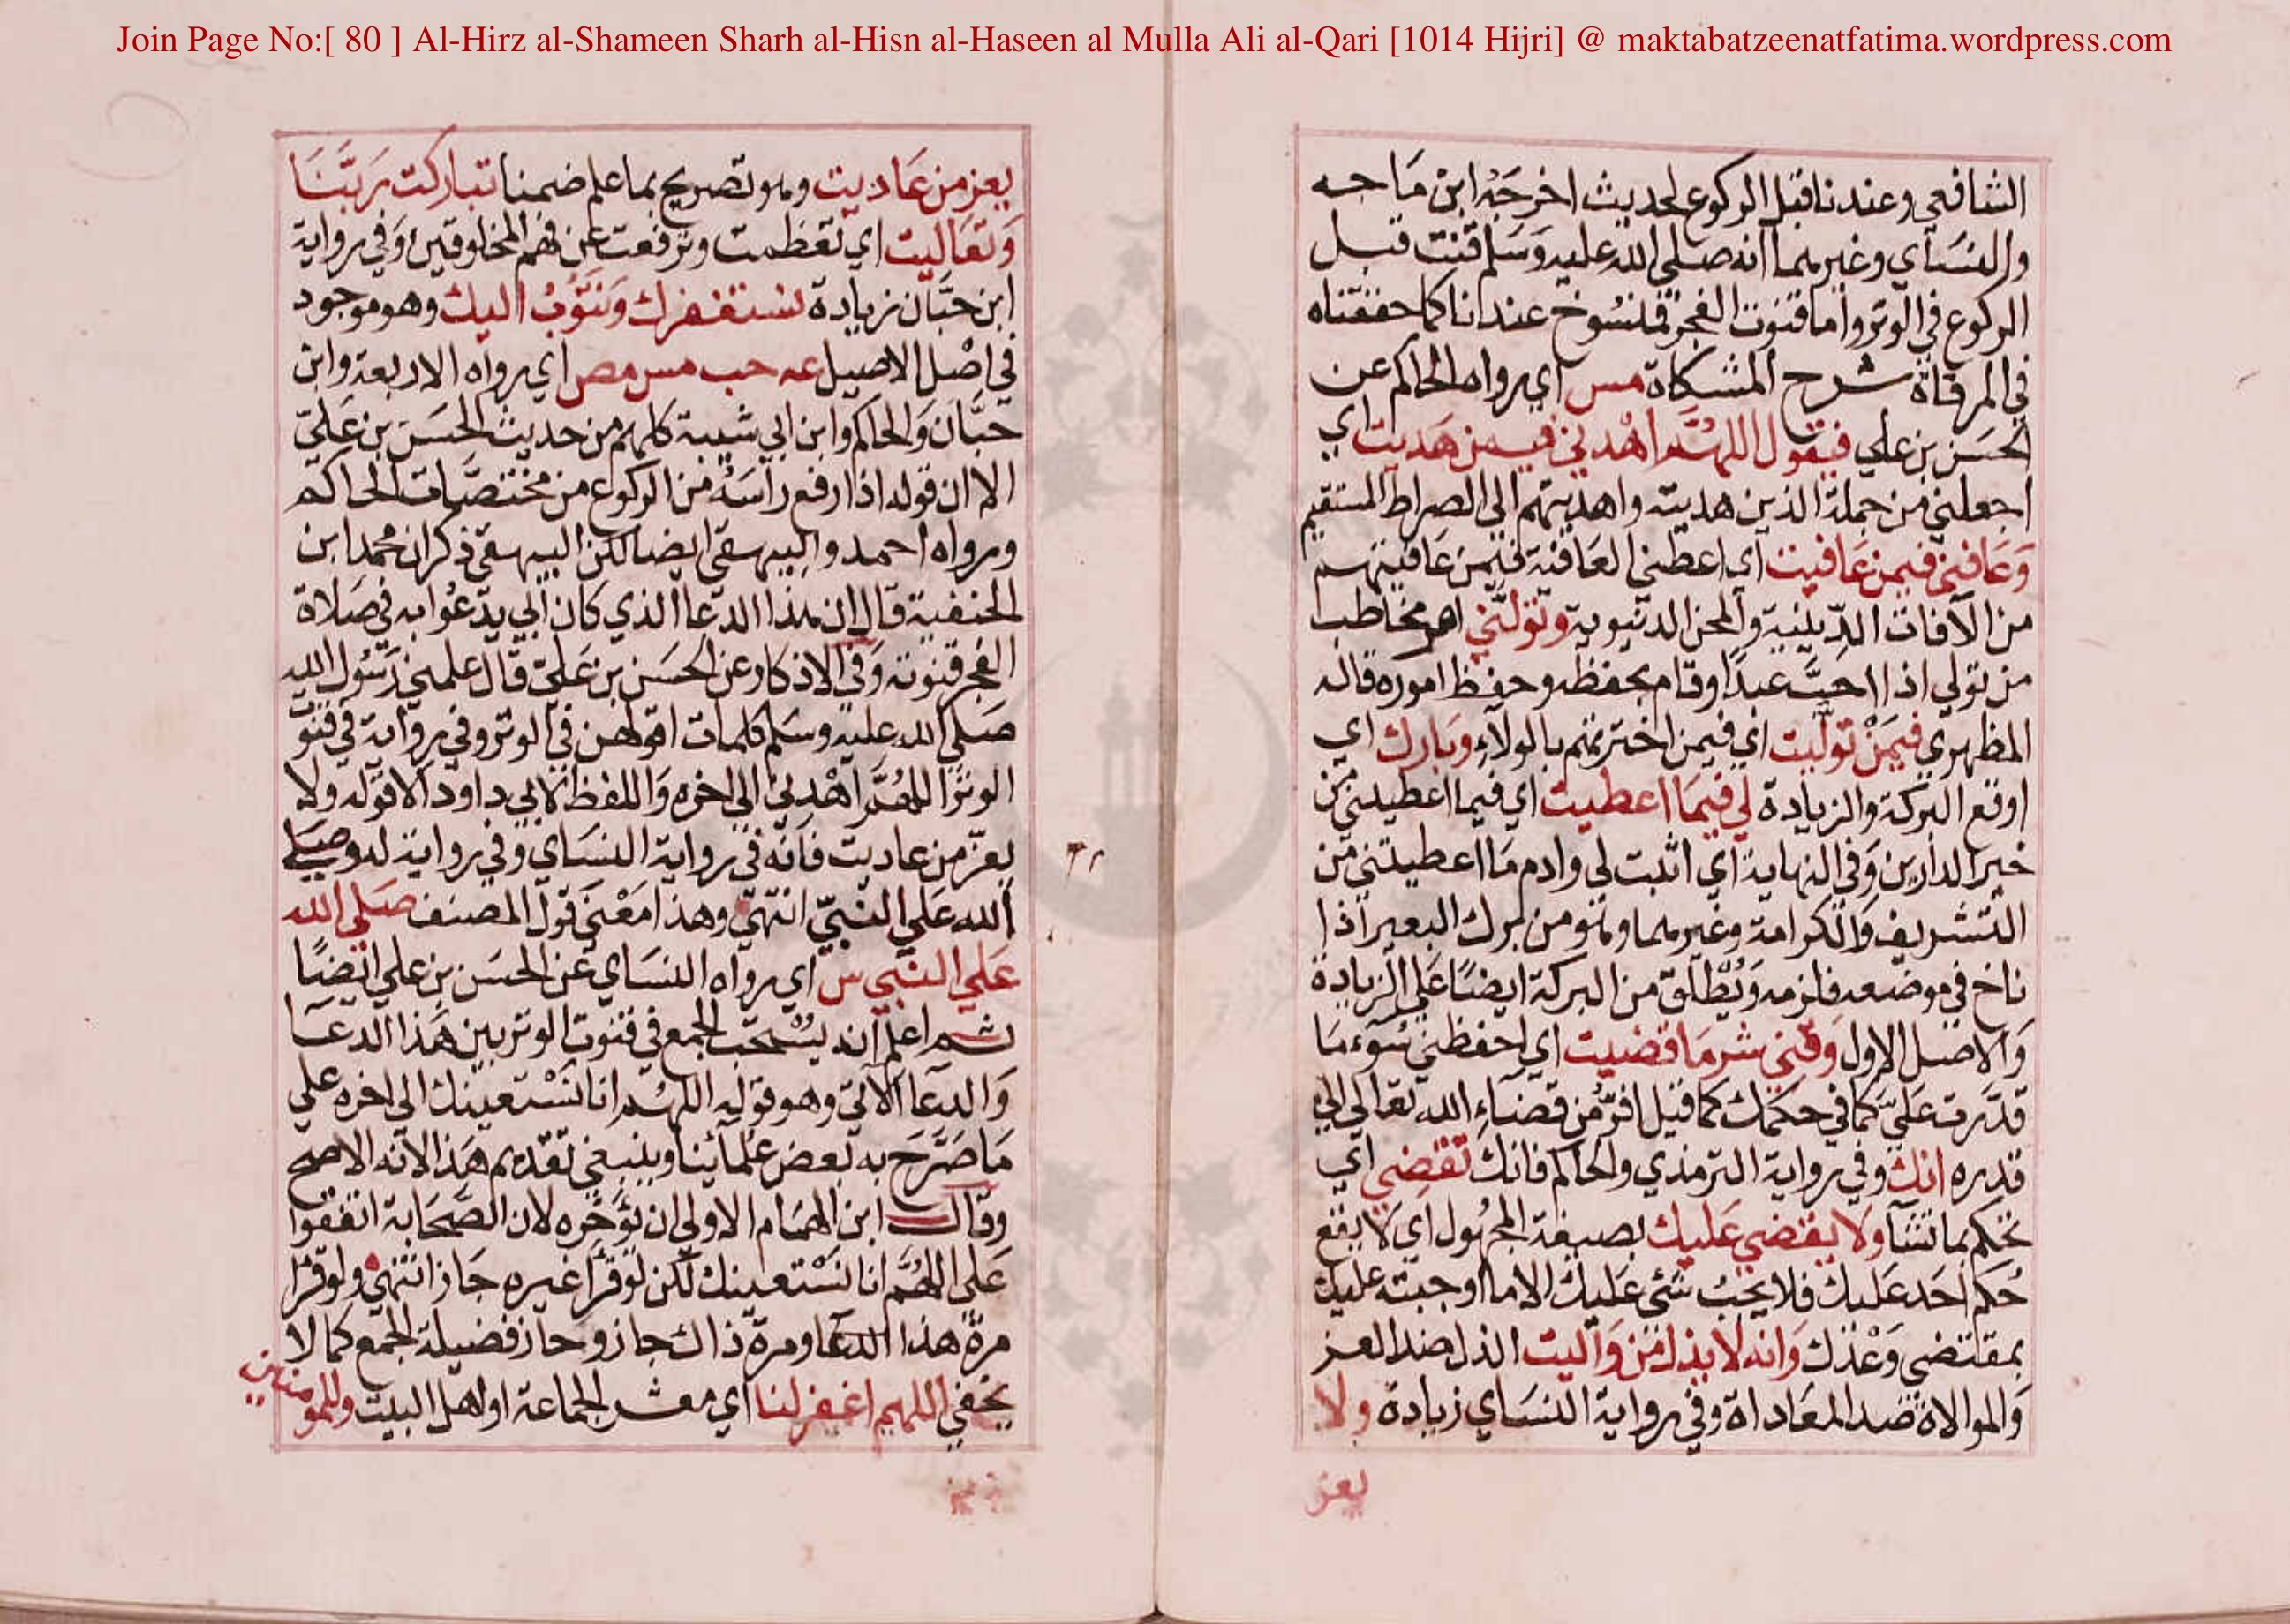 Join Page No:[ 80 ] Al-Hirz al-Shameen Sharh al-Hisn al-Haseen al Mulla Ali al-Qari [1014 Hijri] @ maktabatzeenatfatima.wordpress.com
الشافعي وعندنا قبل الركوع لحديث اخرجه ابن ماجه
والنسآي وغيرهما انه صلى الله عليه وسلم قنت قبل
الركوع في الوتر واما قنوت الفجر فمنسوخ عندنا كما حققناه
في المرقاة شرح المشكاة مس اي رواه الحاكم عن
الحسن بن علي فيقول اللهم اهدني فيمن هديت اي
اجعلني من جملة الذين هديته واهديتهم الى الصراط المستقيم
وعافني فيمن عافيت اي اعطني العافية فيمن عافيتهم
من الآفات الدينية والمحن الدنيوية وتولني امر مخاطب
من تولى اذا احب عبدا وقام بحفظه وحفظ اموره قاله
المظهري فيمن توليت اي فيمن اخترتهم بالولاء وبارك اي
اوقع البركة والزيادة لي فيما اعطيت اي فيما اعطيتني من
خير الدارين وفي النهاية اي اثبت لي وادم ما اعطيتني من
التشريف والكرامة وغيرهما وهو من برك البعير اذا
ناخ في موضعه فلزمه ويطلق من البركة ايضا على الزيادة
والاصل الاول وقني شر ما قضيت اي احفظني سوء ما
قدرت علي كما في حكمك كما قيل افر من قضاء الله تعالى الى
قدره انك وفي رواية الترمذي والحاكم فانك تقضي اي
تحكم بما تشآ ولا يقضى عليك بصيغة المجهول اي لا يقع
حكم احد عليك فلا يجب شئ عليك الا ما اوجبته عليك
بمقتضى وعدك وانه لا يذل من واليت الذل ضد العز
والموالاة ضد المعاداة وفي رواية النساي زيادة ولا
يعز
يعز من عاديت وهو تصريح بما علم ضمنا تباركت ربنا
وتعاليت اي تعظمت وترفعت عن فهم المخلوقين وفي رواية
ابن حبان زيادة نستغفرك ونتوب اليك وهو موجود
في اصل الاصيل عه حب مس مص اي رواه الاربعة وابن
حبان والحاكم وابن ابي شيبة كلهم من حديث الحسن بن علي
الا ان قوله اذا رفع راسه من الركوع من مختصات الحاكم
ورواه احمد والبيهقي ايضا لكن البيهقي ذكر ان محمد ابن
الحنفية قال ان هذا الدعا الذي كان ابي يدعوا به في صلاة
الفجر قنوته وفي الاذكار وعن الحسن بن علي قال علمني رسول الله
صلى الله عليه وسلم كلمات اقولهن في الوتر وفي رواية في قنوت
الوتر اللهم اهدني الى اخره واللفظ لابي داود الا قوله ولا
يعز من عاديت فانه في رواية النساي وفي رواية له وصلى
الله على النبي انتهى وهذا معنى قول المصنف صلى الله
على النبي س اي رواه النساي عن الحسن بن علي ايضا
ثم اعلم انه يستحب الجمع في قنوت الوتر بين هذا الدعا
والدعا الآتي وهو قوله اللهم انا نستعينك الى اخره على
ما صرح به بعض علمائنا وينبغي تقديم هذا لانه الاصح
وقال ابن الهمام الاولى ان يؤخره لان الصحابة اتفقوا
على اللهم انا نستعينك لكن لو قرأ غيره جاز انتهى ولو قرأ
مرة هذا الدعا ومرة ذاك جاز وحاز فضيلة الجمع كما لا
يخفى اللهم اغفر لنا اي معشر الجماعة او اهل البيت وللمومنين